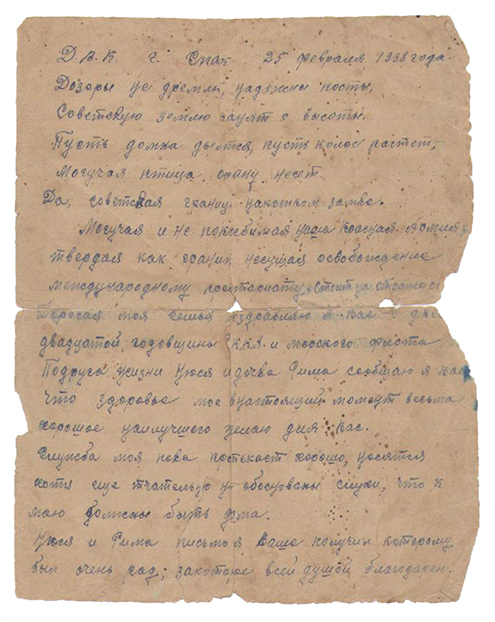 Д.В.К. г. Спас 25 февраля 1938 года
Дозоры не дремли, надежны посты,
Советскую землю с высоты.
Пусть домна дымтся, пусть колос растет,
Могучая птица охану несет.
Да, советская границ на замке.
Могучая и не поколебимая наша Красная Армия
твердая как гранит несущая освобождение
международному пролетариату, стоит на страже
моя семья здравляю я Вас с
двадцатой годовщины РККА и морского флота
Подруга жизни Нюся и дочка Рима сообщаю я
что здоровье мое внастоящий момент весьма
хорошое наилучшего желаю для Вас.
Служба моя пока протекает хорошо, носятся
хотя еще тчательно не обосрваны слухи, что к
маю должны быть дома.
Нюся и Рима письмо я Ваше получил которому
был очень рад, закоторое всей душой благодарен.